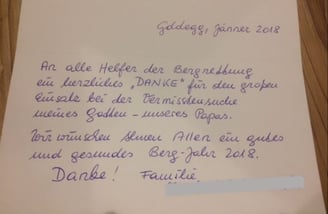 Goldegg, Jänner 2018
An alle Helfer der Bergrettung
ein herzliches „DANKE" für den großen
Einsatz bei der Vermisstensuche
meines Gatten - unseres Papas.
Wir wünschen Ihnen Allen ein gutes
und gesundes Berg-Jahr 2018.
Danke! Familie